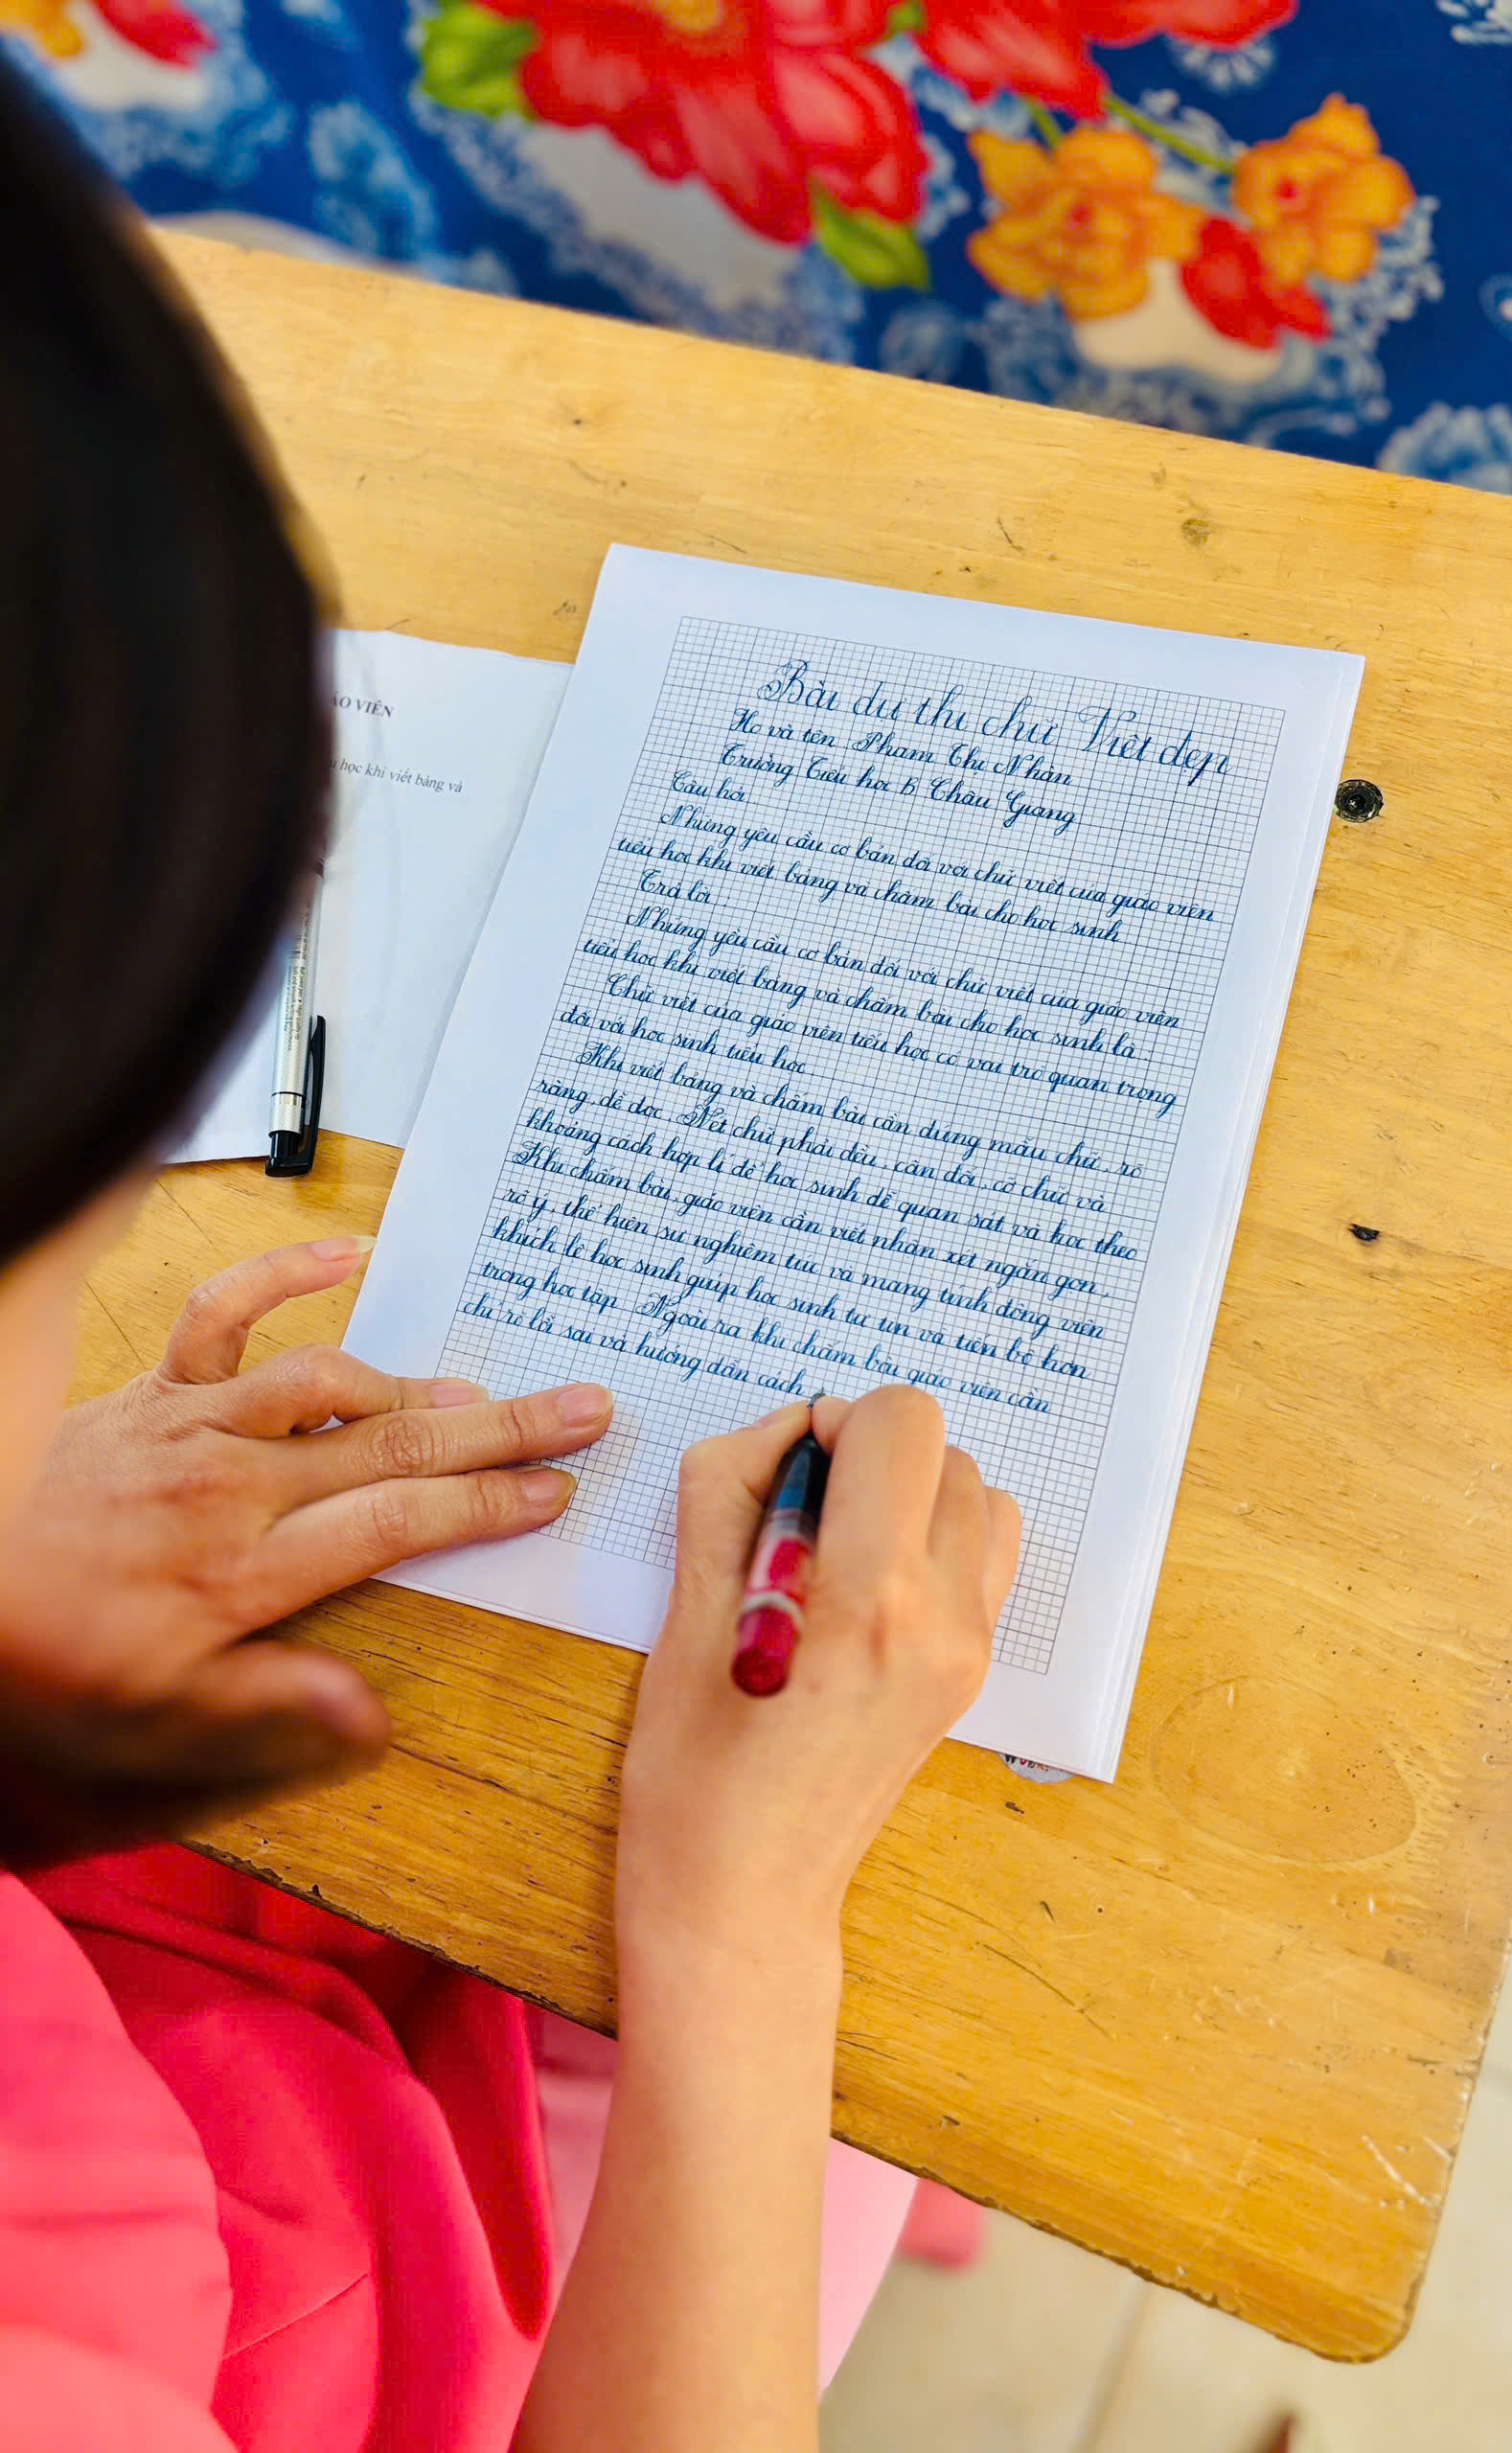 Bài dự thi chữ Việt đẹp
Họ và tên Phạm Thị Nhàn
Trường Tiểu học B Châu Giang
Câu hỏi
Những yêu cầu cơ bản đối với chữ viết của giáo viên
tiểu học khi viết bảng và chấm bài cho học sinh
Trả lời
Những yêu cầu cơ bản đối với chữ viết của giáo viên
tiểu học khi viết bảng và chấm bài cho học sinh là :
Chữ viết của giáo viên tiểu học có vai trò quan trọng
đối với học sinh tiểu học
Khi viết bảng và chấm bài cần đúng mẫu chữ, rõ
ràng, dễ đọc. Nét chữ phải đều, cân đối, cỡ chữ và
khoảng cách hợp lí để học sinh dễ quan sát và học theo
Khi chấm bài, giáo viên cần viết nhận xét ngắn gọn,
rõ ý, thể hiện sự nghiêm túc và mang tính động viên
khích lệ học sinh giúp học sinh tự tin và tiến bộ hơn
trong học tập Ngoài ra khi chấm bài giáo viên cần
chỉ rõ lỗi sai và hướng dẫn cách
ÁO VIÊN
học khi viết bảng và